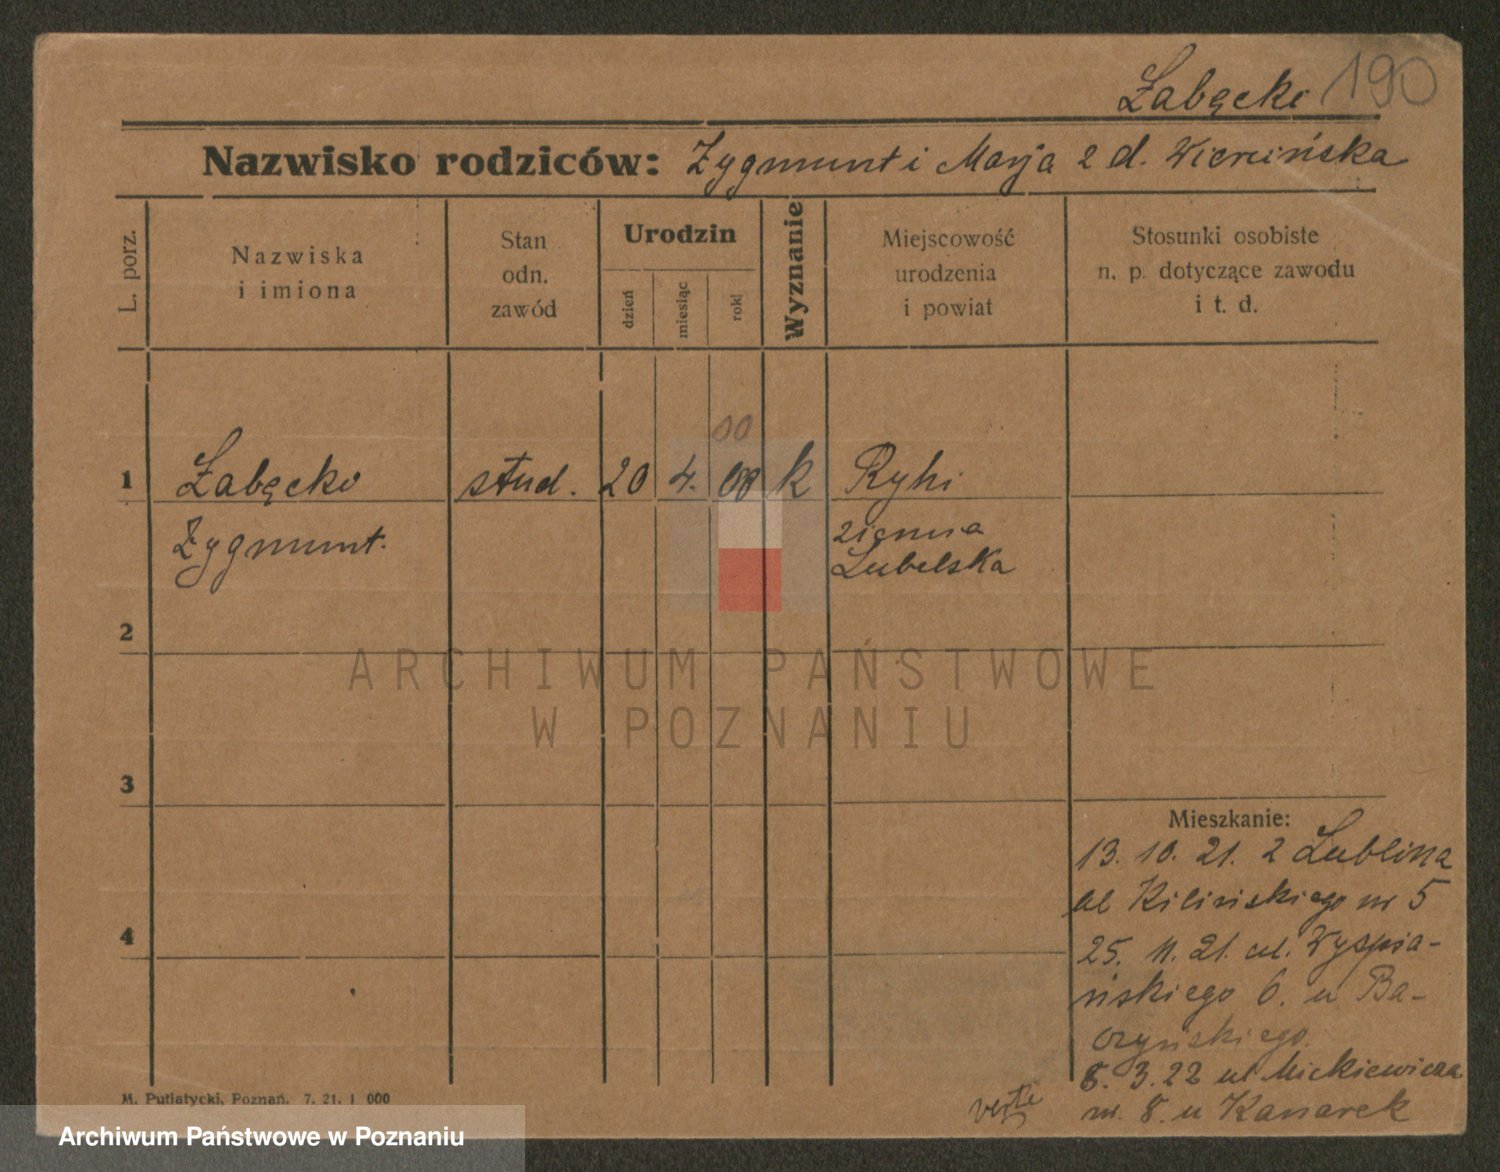 Żabęcki 190
Nazwisko rodziców: Zygmunt i Marja z d. Wiercińska
L. porz.
Nazwiska
i imiona
Stan
odn.
zawód
Urodzin
dzień
miesiąc
rok
Wyznanie
Miejscowość
urodzenia
i powiat
Stosunki osobiste
n. p. dotyczące zawodu
i t. d.
00
1 Żabęcki stud. 20 4. 00 k Ryki
Zygmunt. ziemia
Lubelska
2
ARCHIWUM PAŃSTWOWE
W POZNANIU
3
Mieszkanie:
13. 10. 21. z Lublina
ul Kilińskiego nr 5
4
25. 11. 21. ul. Wyspia-
ńskiego 6. u Ba-
czyńskiego.
8. 3. 22 ul Mickiewicza
nr. 8. u Kanarek
verte
M. Putiatycki, Poznań. 7. 21. 1 000
Archiwum Państwowe w Poznaniu